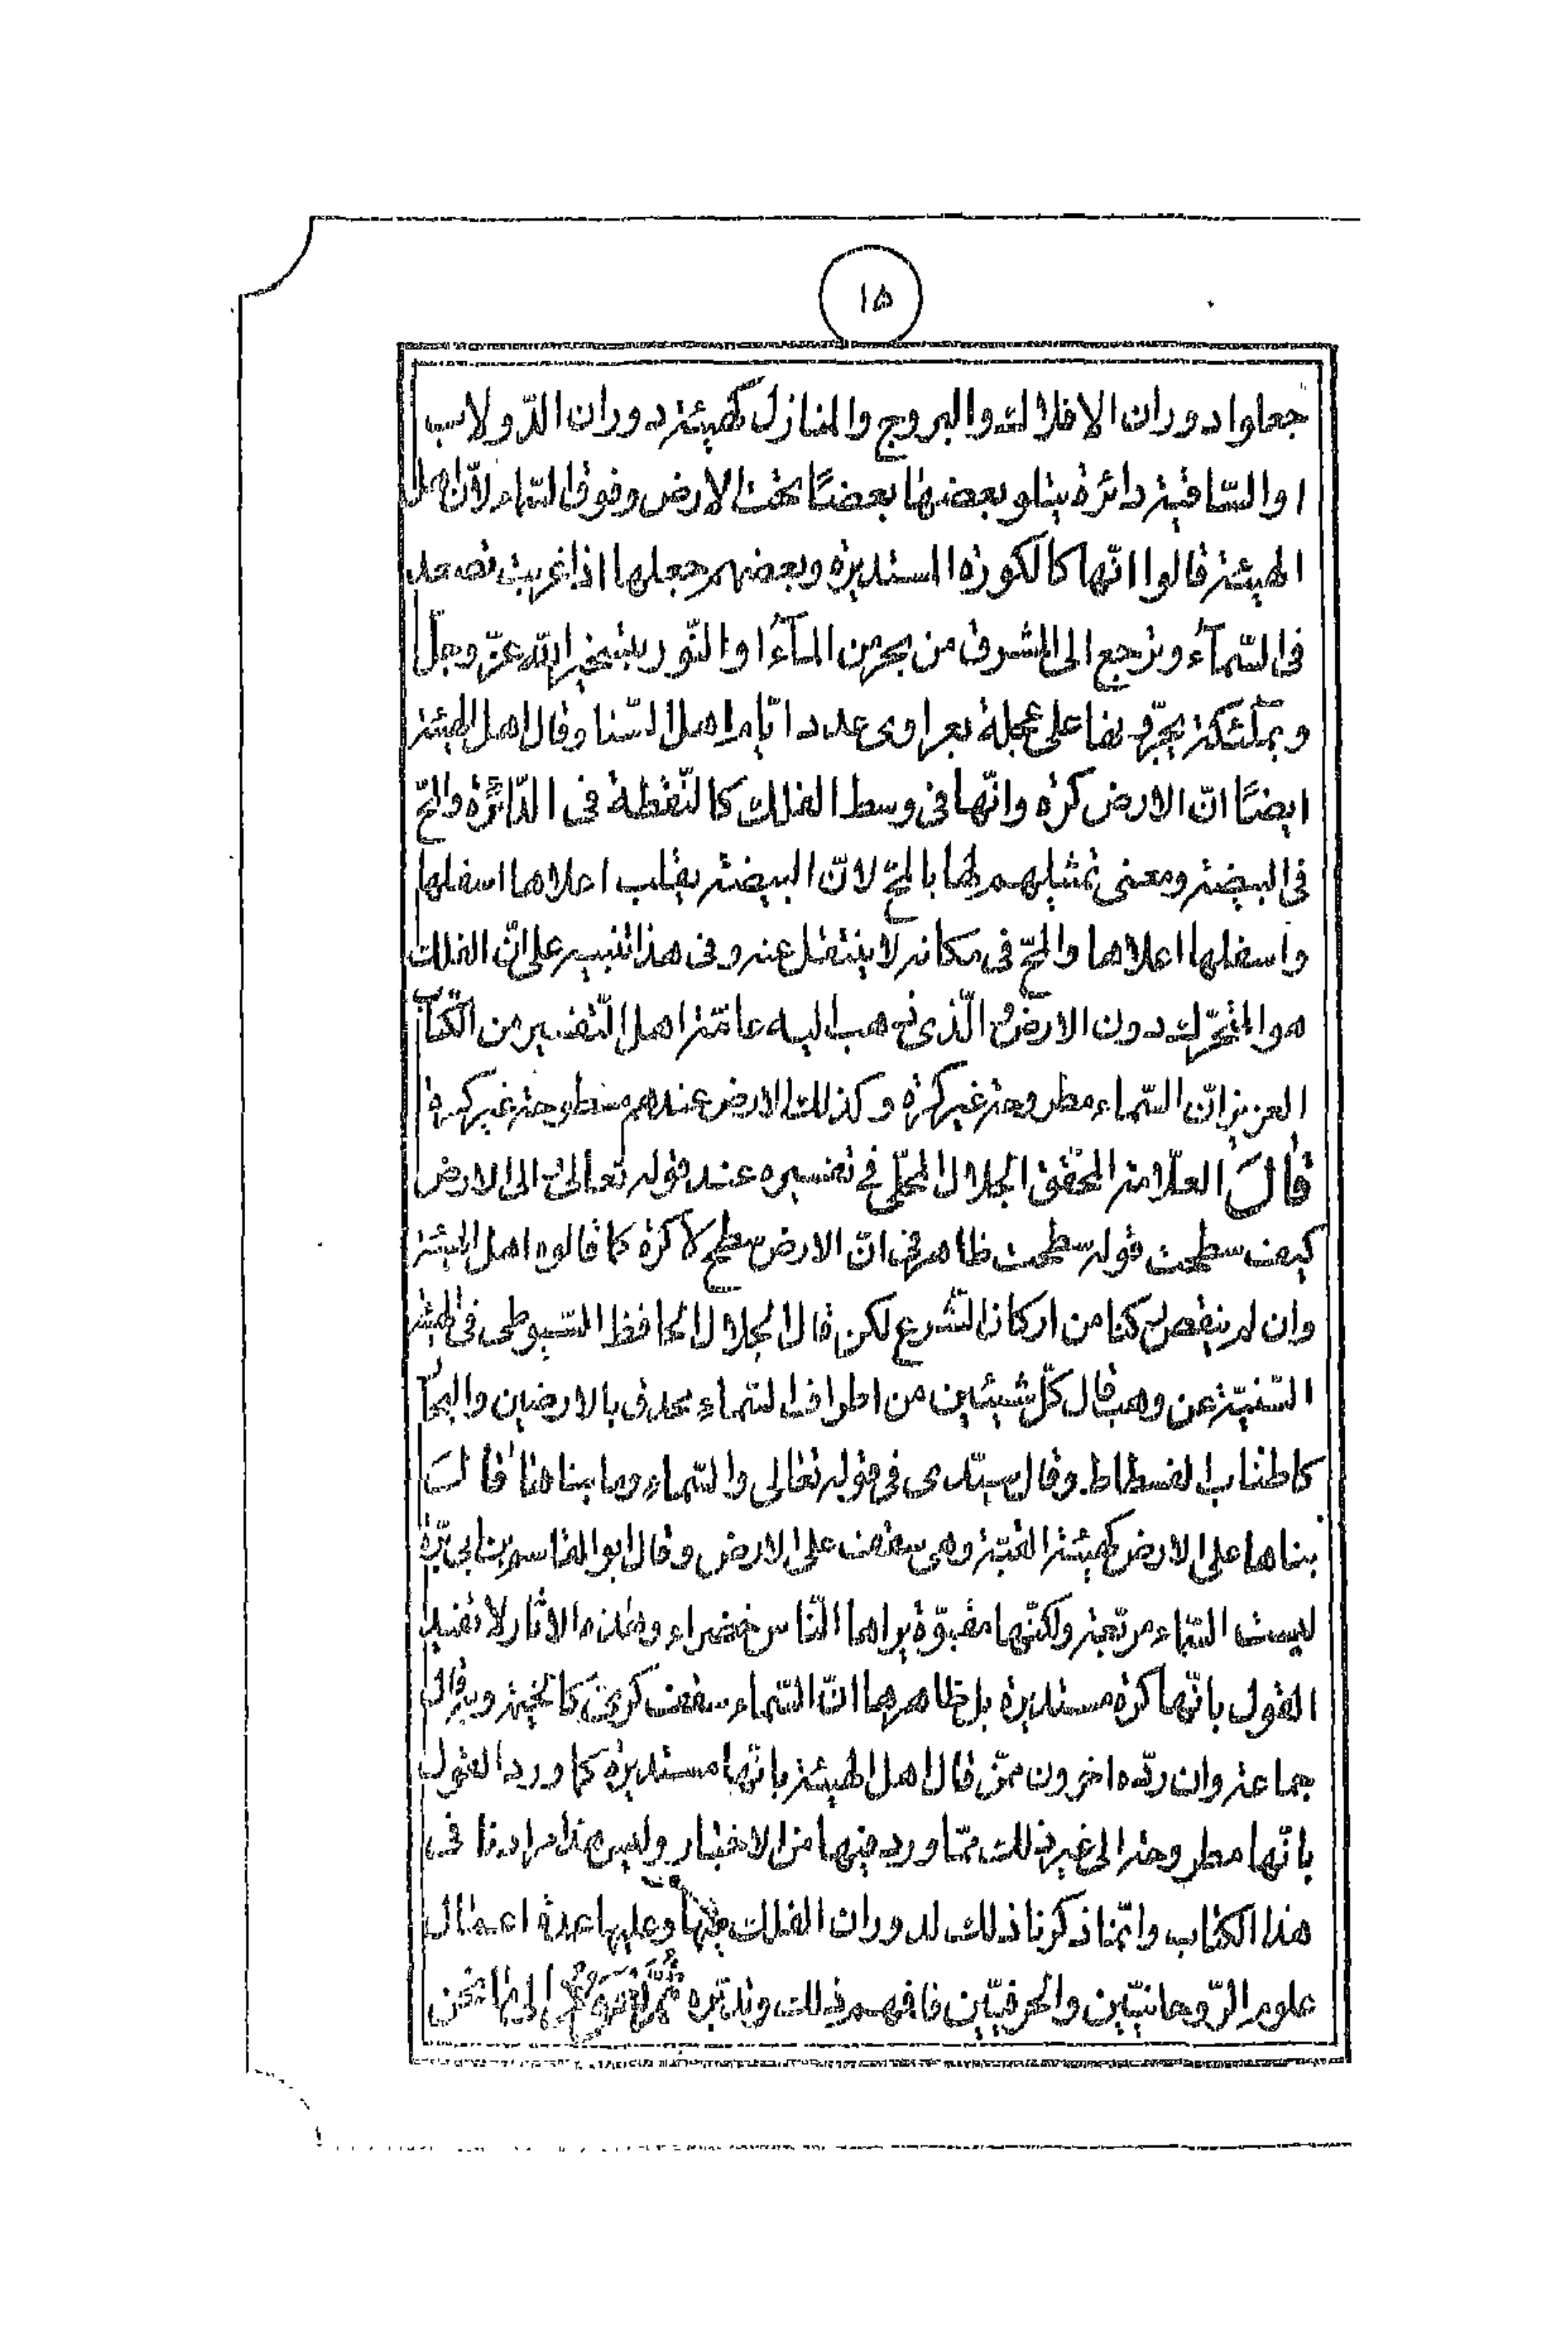 ١٥
جعلوا دوران الافلاك والبروج والمنازل كهيئة دوران الدّولاب
او السّاقية دائرة يتلو بعضها بعضًا تحت الارض وفوق السّماء لانّ اهل
الهيئة قالوا انّها كالكورة المستديرة وبعضهم جعلها اذا غربت تصعد
فى السّمآء وترجع الى المشرق من بحر من المآء او النّور بتسخير الله عزّ وجلّ
وبملئكة يجرّونها على عجلة بعراوى عدد ايّام اهل السّنا وقال اهل الهيئة
ايضًا انّ الارض كرة وانّها فى وسط الفلك كالنّقطة فى الدّائرة والمحّ
فى البيضة ومعنى تمثيلهم لها بالمحّ لانّ البيضة يقلب اعلاها اسفلها
واسفلها اعلاها والمحّ فى مكانه لا ينتقل عنه وفى هذا تنبيه على انّ الفلك
هو المتحرّك دون الارض والّذى ذهب اليه عامّة اهل التّفسير من الكتاب
العزيز انّ السّماء مطروحة غير كرة وكذلك الارض عندهم مسطوحة غير كرة
قال العلّامة المحقّق الجلال المحلّى فى تفسيره عند قوله تعالى والى الارض
كيف سطحت قوله سطحت ظاهر فى انّ الارض سطح لا كرة كما قالوه اهل الهيئة
وان لم ينقص ركنا من اركان الشّرع لكن قال الجلال الحافظ السّيوطى فى الهيئة
السّنيّة عن وهب قال كلّ شيئين من اطراف السّماء محدق بالارضين والبحار
كاطناب الفسطاط وقال سدّى فى قوله تعالى والسّماء وما بناها قال
بناها على الارض كهيئة القبّة وهى سقف على الارض وقال ابو القاسم بن ابى بزّة
ليست السّماء مربّعة ولكنّها مقبوّة يراها النّاس خضراء وهذه الاثار لا تفيد
القول بانّها كرة مستديرة بل ظاهرها انّ السّماء سقف كرىّ كالخيمة وبه قال
جماعة وان ردّه اخرون ممّن قال اهل الهيئة بانّها مستديرة كما ورد القول
بانّها مطروحة الى غير ذلك ممّا ورد فيها من الاخبار وليس هذا مرادنا فى
هذا الكتاب وانّما ذكرنا ذلك لدوران الفلك فيها وعليها عمدة اعمال
علوم الرّوحانيّين والحرفيّين فافهم ذلك وتدبّره الى ما نحن